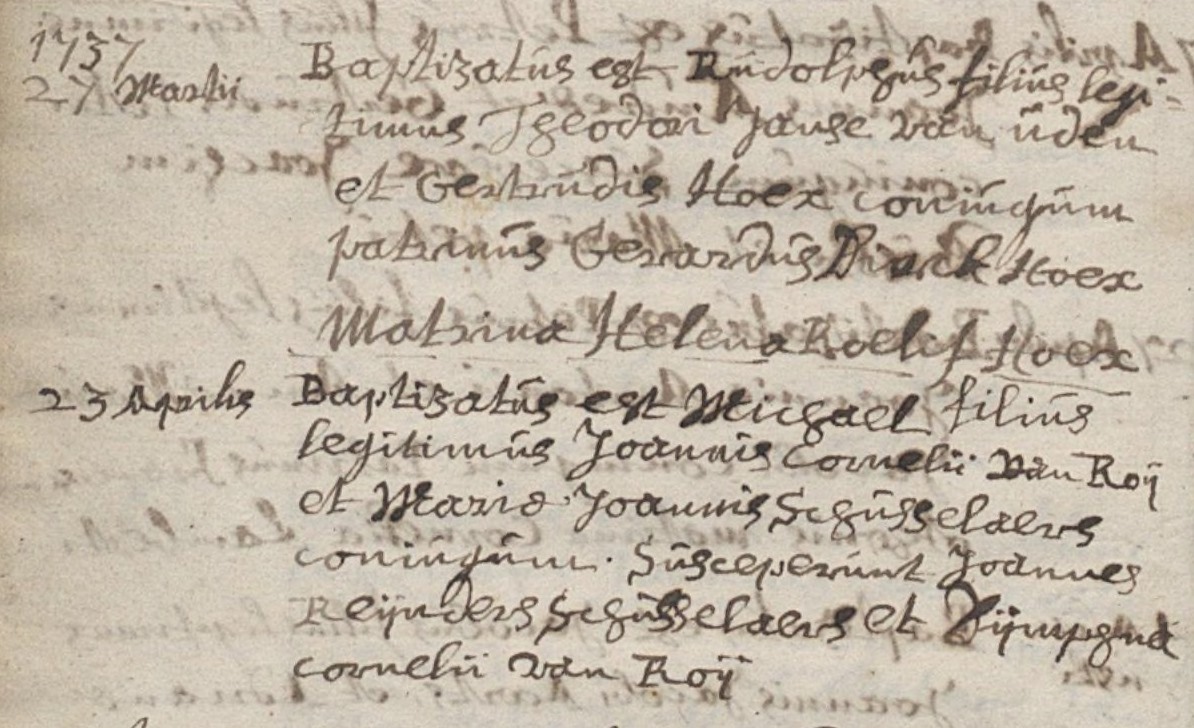 1737
27 Martii Baptizatus est Rudolphus filius legi-
timus Theodori Janse van uden
et Gertrudis Hoex coniugum
patrinus Gerardus Dirck Hoex
Matrina Helena Roelif Hoex
23 Aprilis Baptizatus est Michael filius
legitimus Joannis Cornelii van Roij
et Mariae Joannis Schusselaers
coniugum. Susceperunt Joannes
Reijnders Schusselaers et Dijmphna
cornelii van Roij